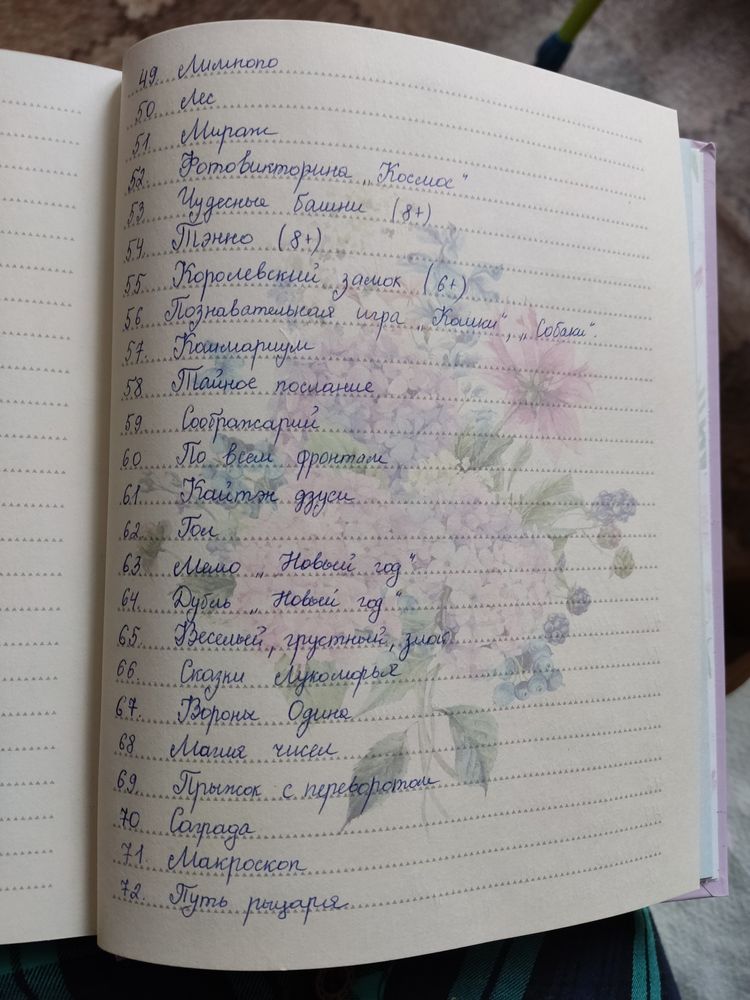 49. Лимпопо
50. Лес
51. Мираж
52. Фотовикторина „Космос"
53. Чудесные башни (8+)
54. Тэнно (8+)
55. Королевский замок (6+)
56. Познавательная игра „Кошки", „Собаки".
57. Кашмариум
58. Тайное послание
59. Соображарий
60 По всем фронтам
61 Кайтэн дзуси
62. Гол
63. Мемо „Новый год"
64. Дубль „Новый год"
65. Веселый, грустный, злой
66. Сказки Лукоморья
67. Вороны Одина
68 Магия чисел
69. Прыжок с переворотом
70. Саграда
71. Макроскоп
72. Путь рыцаря.